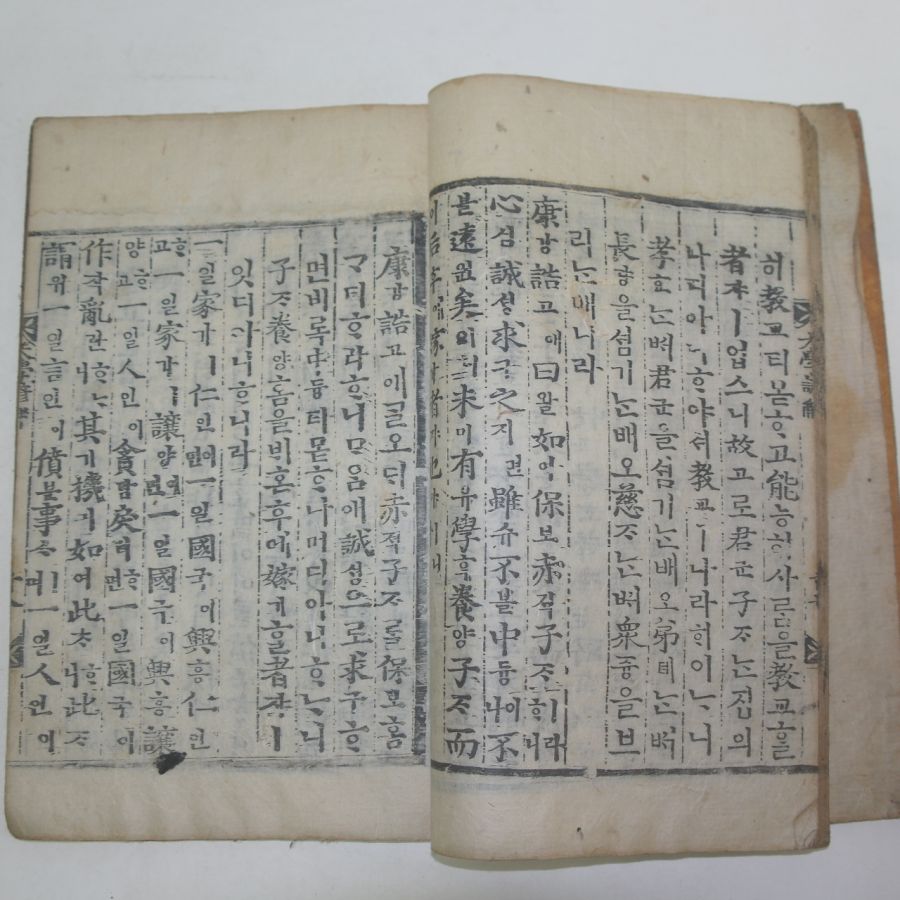 히敎교티몯ᄒᆞ고能능히사ᄅᆞᆷ을敎교ᄒᆞᆯ
者쟈ㅣ업스니故고로君군子ᄌᆞᄂᆞᆫ집의
나디아니ᄒᆞ야셔敎교ㅣ나라히이ᄂᆞ니
孝효ᄂᆞᆫᄡᅥ君군을셤기ᄂᆞᆫ배오弟뎨ᄂᆞᆫᄡᅥ
長댱을셤기ᄂᆞᆫ배오慈ᄌᆞᄂᆞᆫᄡᅥ衆즁을브
리ᄂᆞᆫ배니라
康강誥고애曰왈如여保보赤젹子ᄌᆞㅣ라ᄒᆞ니
心심誠셩求구之지면雖슈不블中듕이나不
블遠원矣의니未미有유學ᄒᆞᆨ養양子ᄌᆞ而
이后후에嫁가者쟈也야ㅣ니라
康강誥고애ᄀᆞᆯ오ᄃᆡ赤젹子ᄌᆞᄅᆞᆯ保보홈
ᄀᆞᆮ티ᄒᆞ라ᄒᆞ니ᄆᆞᄋᆞᆷ애誠셩으로求구ᄒᆞ
면비록中듕티몯ᄒᆞ나머디아니ᄒᆞᄂᆞ니
子ᄌᆞ養양홈을ᄇᆡ혼후에嫁가ᄒᆞᆯ者쟈ㅣ
잇디아니ᄒᆞ니라
一일家가ㅣ仁인이면一일國국이興흥仁인
ᄒᆞ고一일家가ㅣ讓양이면一일國국이興흥讓
양ᄒᆞ고一일人인이貪탐戾려ᄒᆞ면一일國국이
作작亂란ᄒᆞᄂᆞ니其기機긔如여此ᄎᆞᄒᆞ니此ᄎᆞ
謂위一일言언이僨분事ᄉᆞㅣ며一일人인이
大學諺解